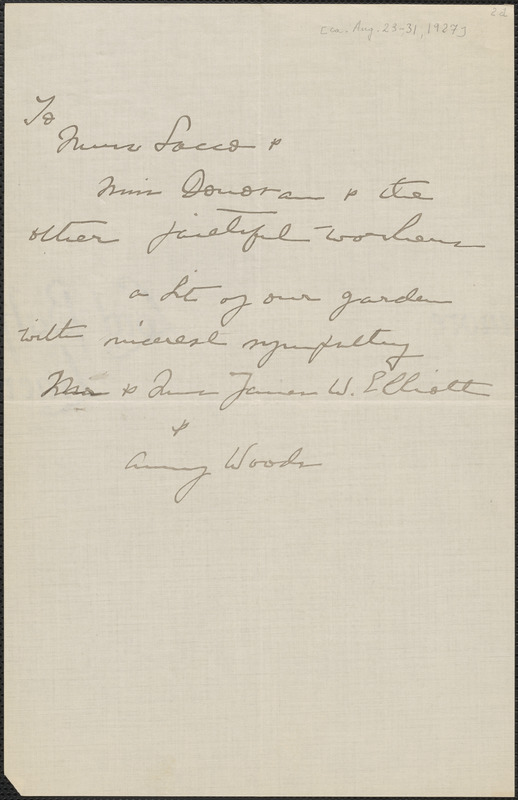 22
[ca. Aug. 23-31, 1927]
To
Mrs Sacco &
Miss Donovan & the
other faithful workers
a bit of our garden
with sincerest sympathy
Mr & Mrs James W. Elliott
&
Amy Woods